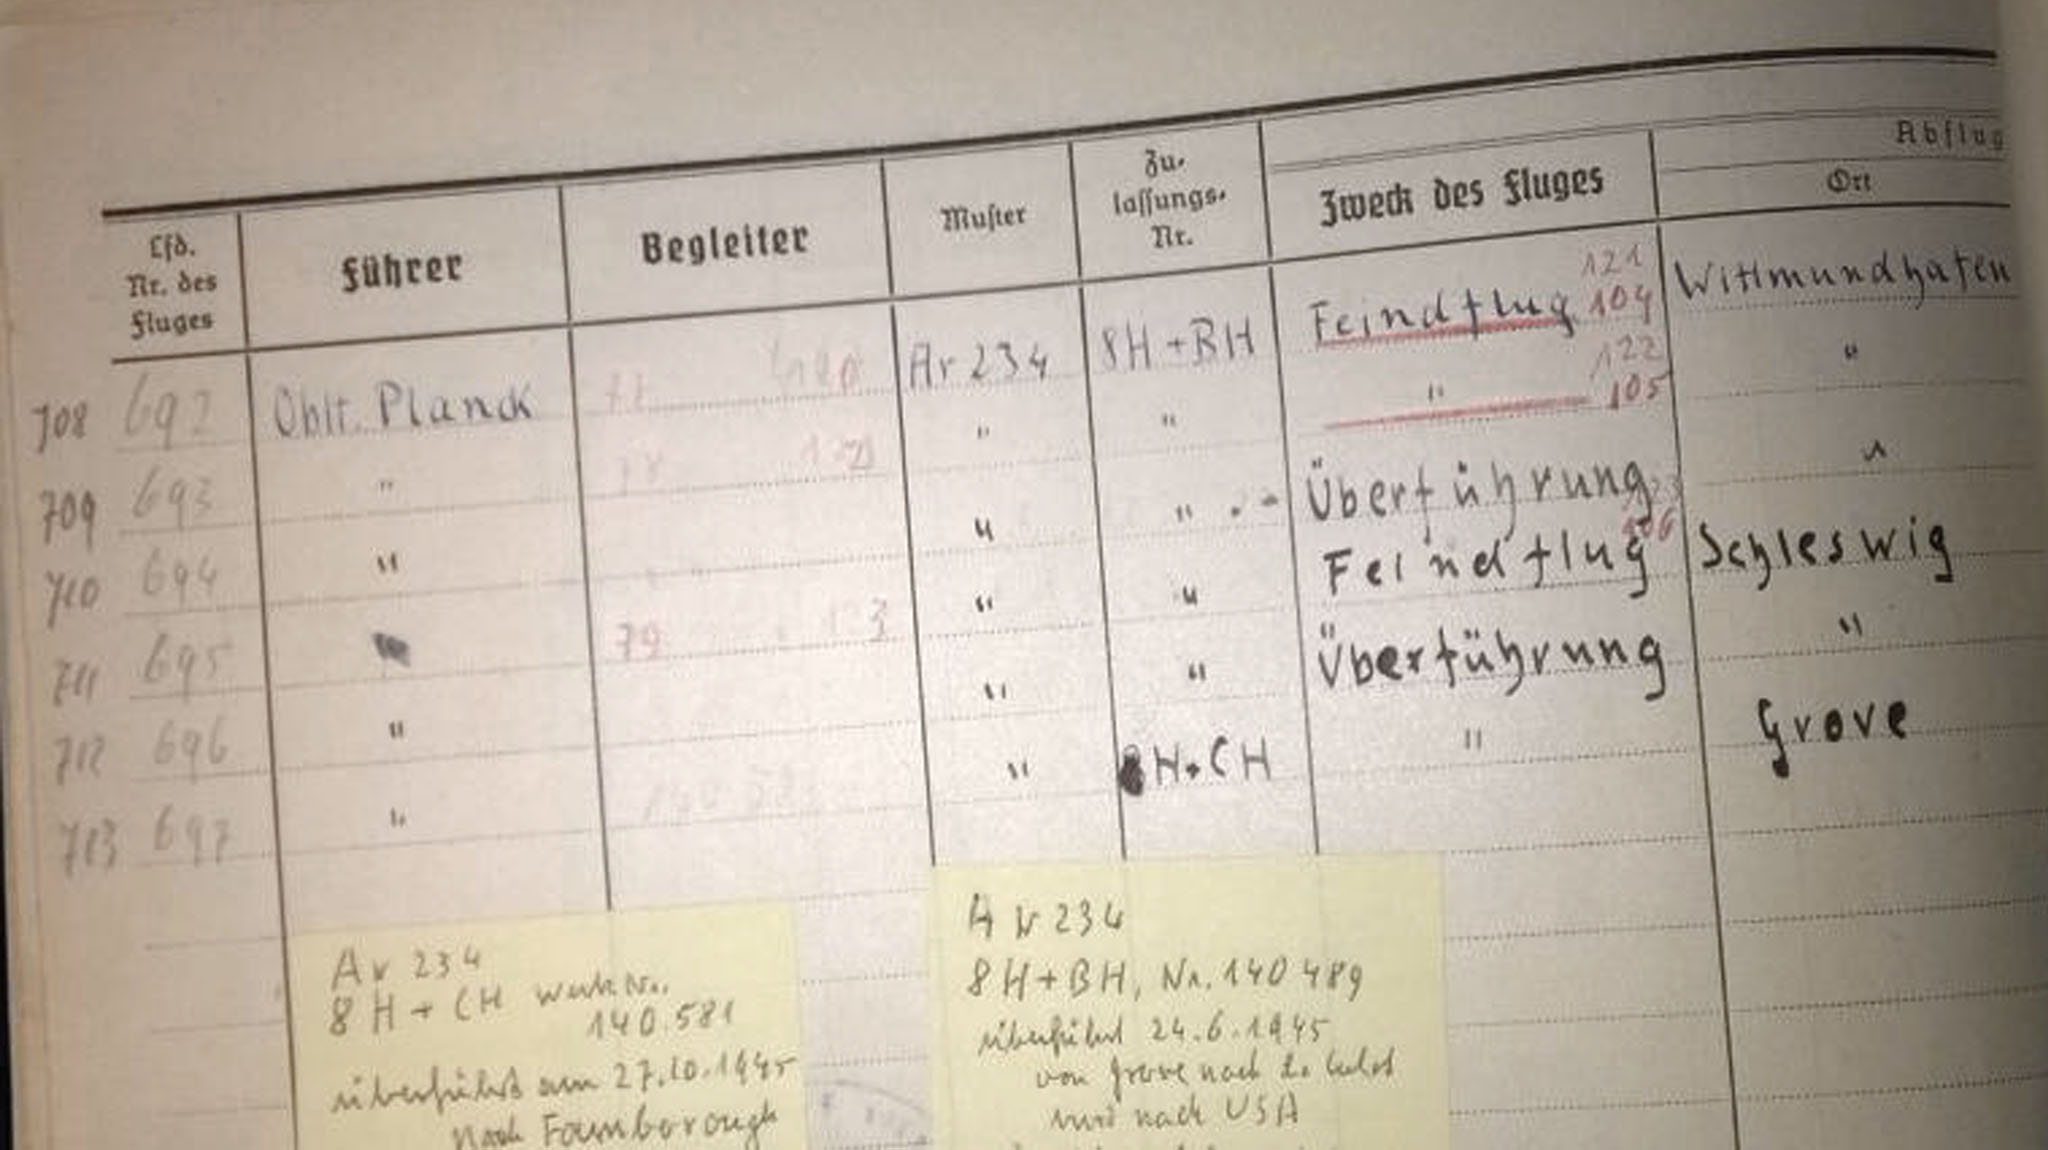 Abflug
Lfd. Nr. des Fluges Führer Begleiter Muster Zu-lassungs-Nr. Zweck des Fluges Ort
121
708 692 Oblt. Planck 77 Ar 234 8H+BH Feindflug 104 Wittmundhafen
122
709 693 " 78 " " " 105 "
710 694 " " " Überführung "
711 695 79 " " Feindflug 106 Schleswig
712 696 " " " Überführung "
713 697 " " 8H+CH " Grove
Ar 234
8H+CH Werk Nr.
140.581
überführt am 27.10.1945
nach Farnborough
Ar 234
8H+BH, Nr. 140489
überführt 24.6.1945
von Grove nach
und nach USA